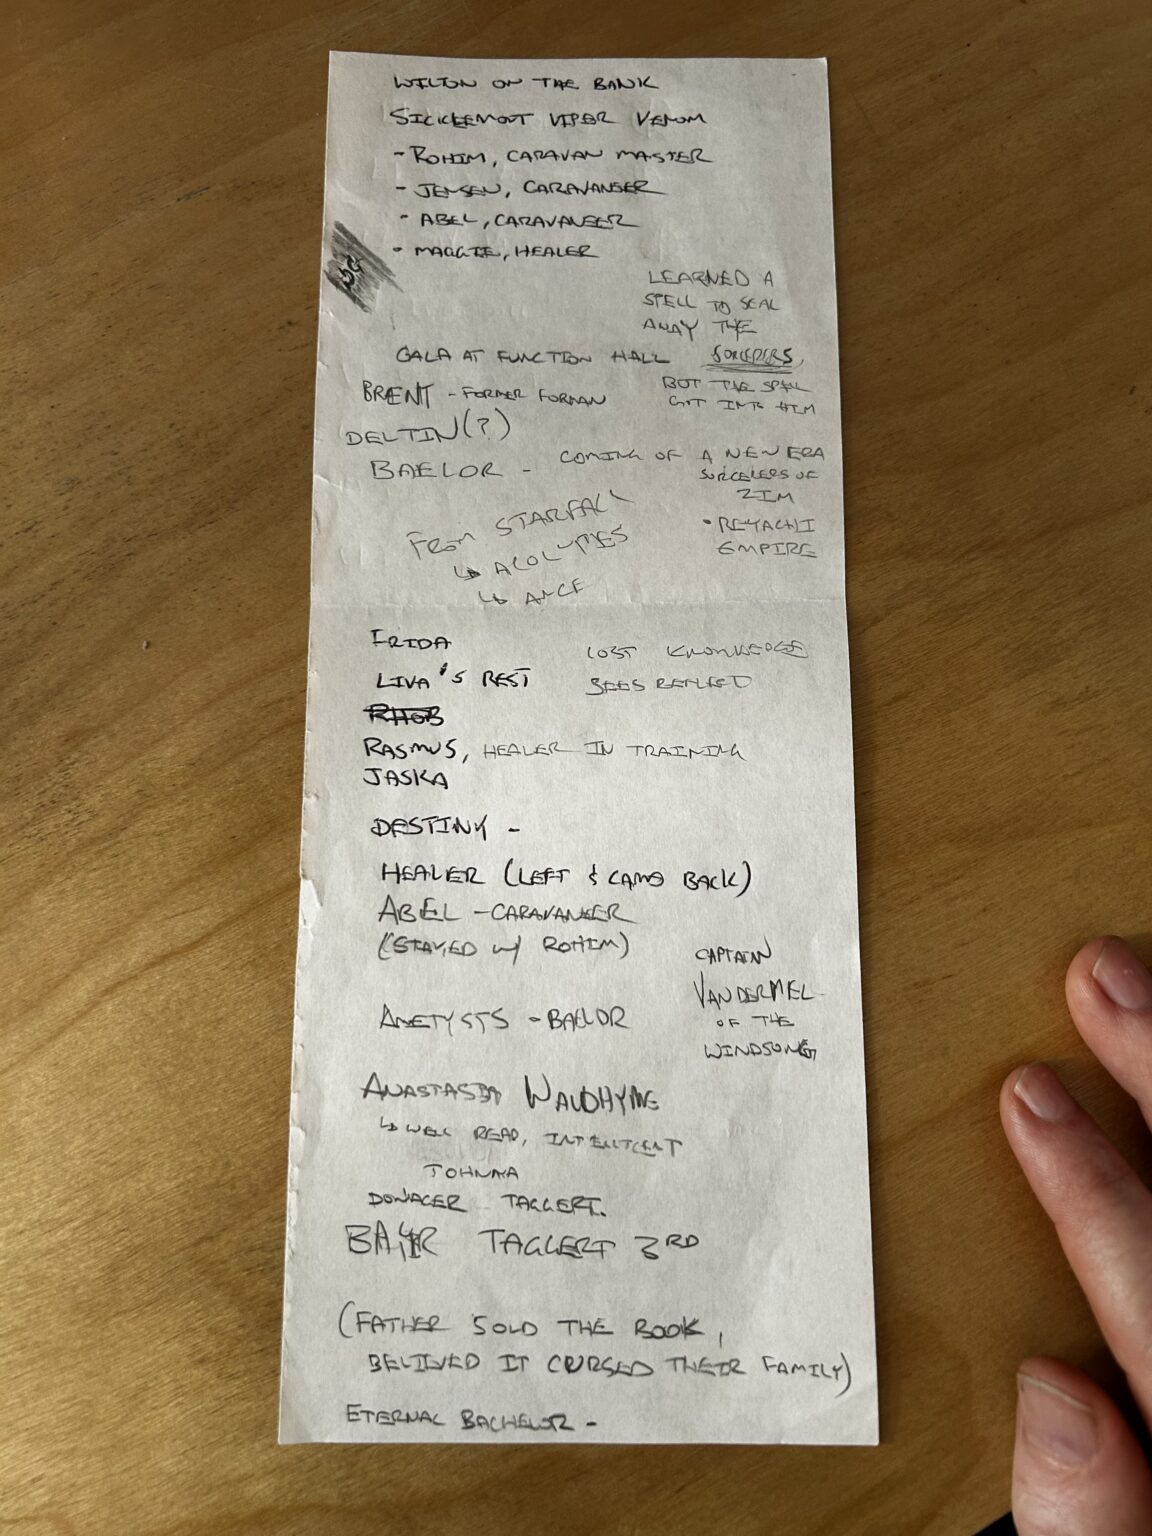 WILTON ON THE BANK
SICKLEMOUT VIPER VENOM
- ROHIM, CARAVAN MASTER
- JENSEN, CARAVANEER
- ABEL, CARAVANEER
- MAGGIE, HEALER
LEARNED A
SPELL TO SEAL
AWAY THE
SORCERERS,
BUT THE SPELL
GOT INTO HIM
GALA AT FUNCTION HALL
BRENT - FORMER FORMAN
DELTIN(?)
BAELOR - COMING OF A NEW ERA
SORCERERS OF
ZIM
• REYACHI
EMPIRE
FROM STARFALL
↳ ACOLYTES
↳
FRIDA
LIVA'S REST
LOST KNOWLEDGE
SEES REFLECTD
RHOB
RASMUS, HEALER IN TRAINING
JASKA
DESTINY -
HEALER (LEFT & CAME BACK)
ABEL - CARAVANEER
(STAYED W/ ROHIM)
CAPTAIN
VANDERMEL
OF THE
WINDSONG
AMETYSTS - BAELOR
ANASTASIA WALDHYME
↳ WELL READ, INTELLIGENT
TOHNAYA
DOWAGER TAGGERT.
TAGGERT 3RD
(FATHER SOLD THE BOOK,
BELIEVED IT CURSED THEIR FAMILY)
ETERNAL BACHELOR -